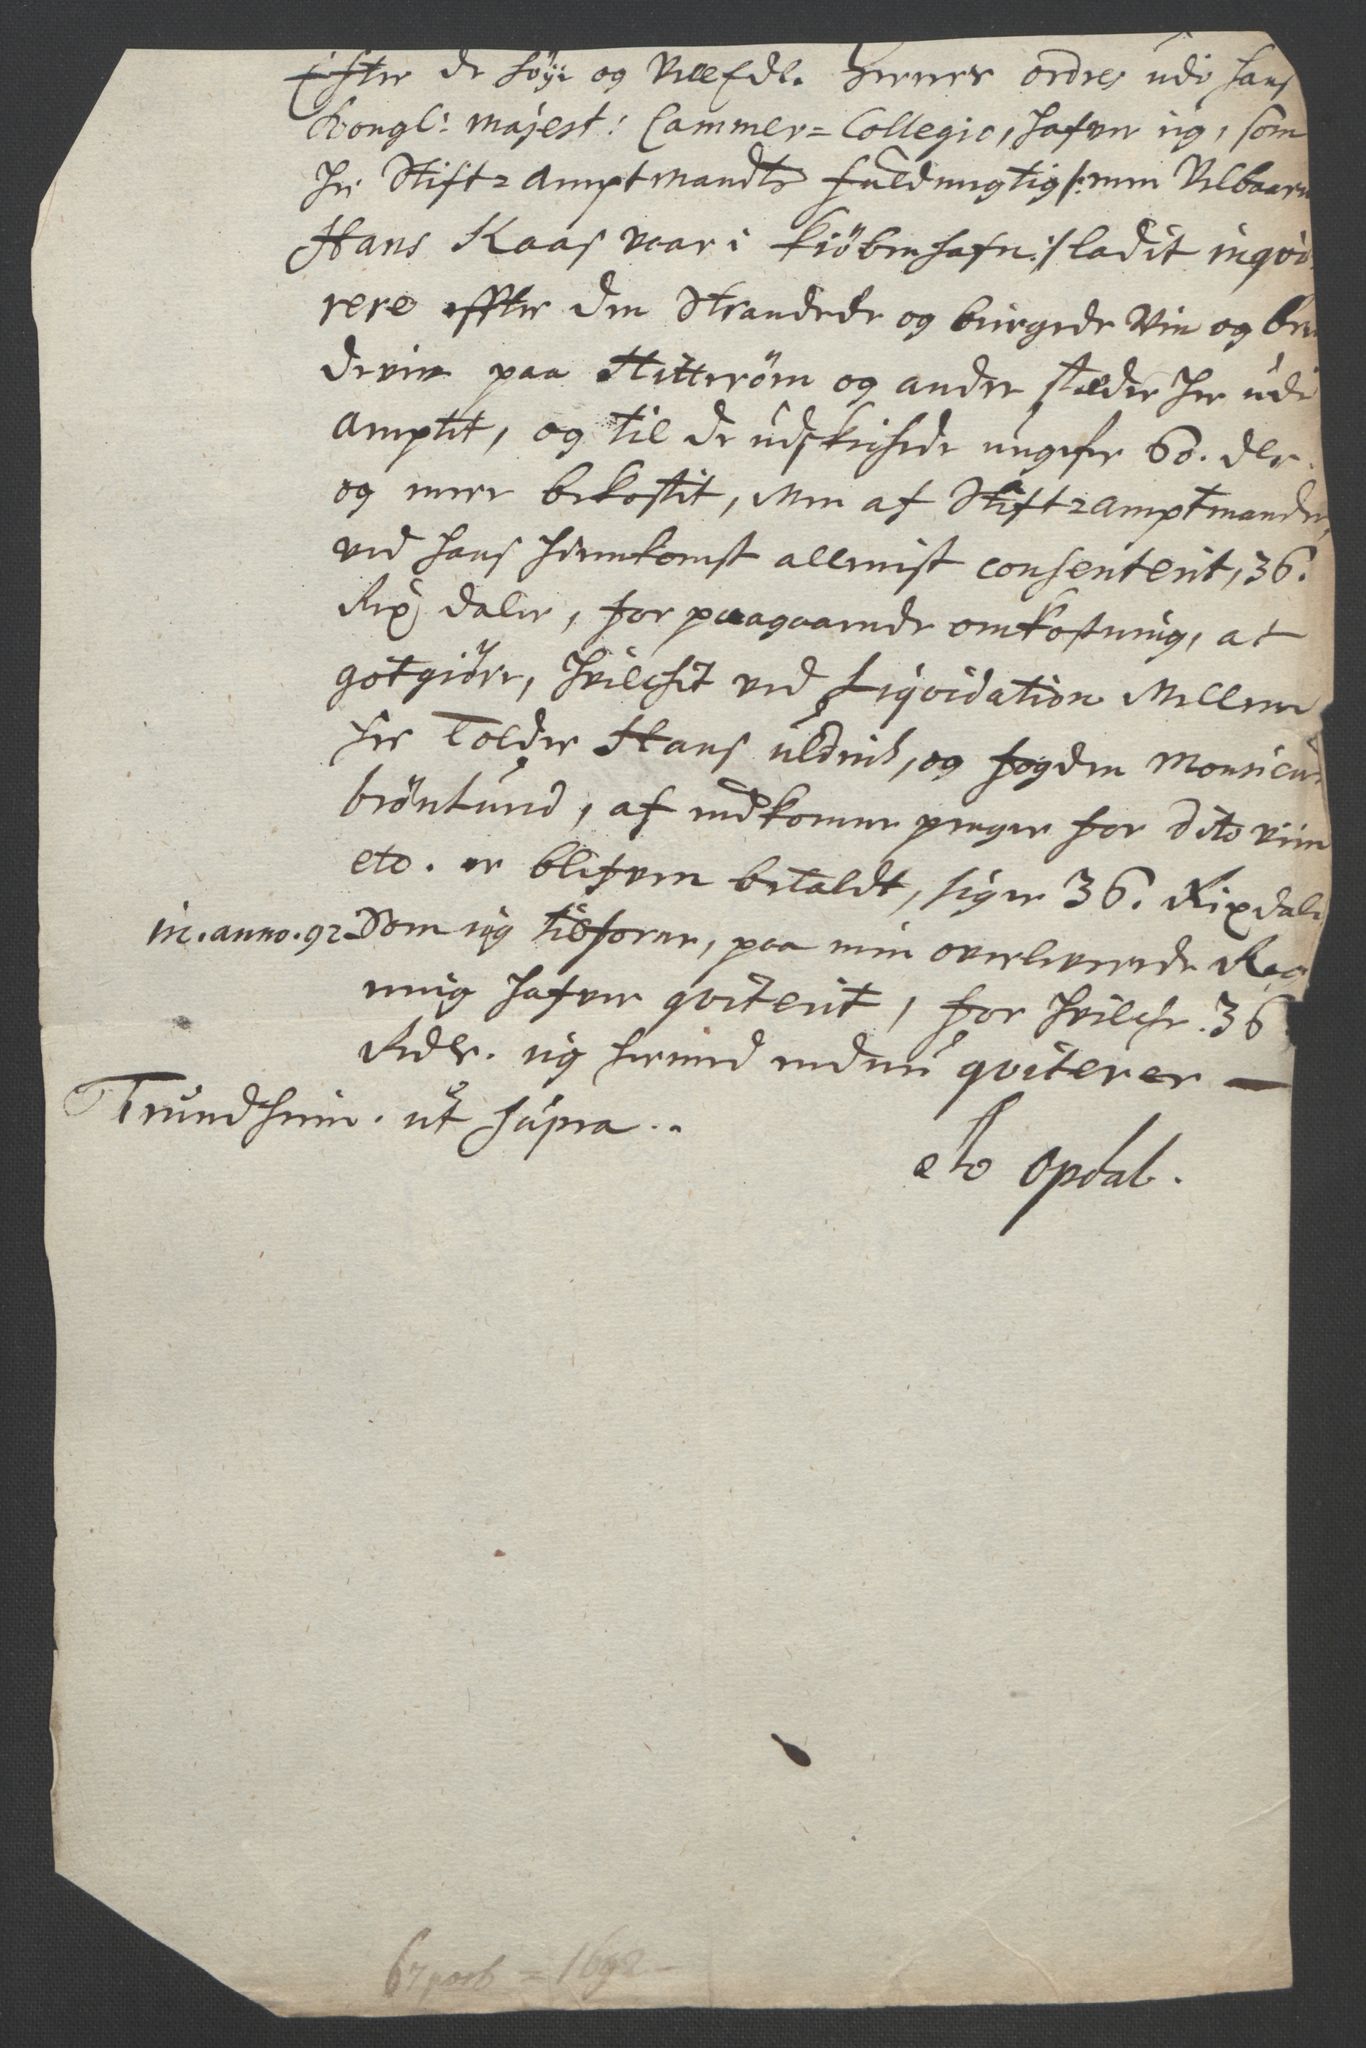 Efter de höye og Velædl. Herrers ordres udi hans
Kongl: Majest: Cammer= Collegio, hafver iig, som
hr Stiftz Amptmandts fuldmegtig /: min Velbaarn
Hans Kaas vaar i Kiöbenhafn :/ ladit inqvi
rere effter den Strandede og biergede Viin og bren
deviin paa Hitterøen og andre stæder her udi
Amptet, og til de udskichede ungefer 60. dlr.
og mere bekostit, Men af Stiftzamptmanden,
ved hans hiemkomst allenist consenterit, 36.
Rix daler, for paagaaende omkostning, at
gotgiöre, hvilchit ved Liqvidation Mellem
her Tolder Hans Uldrich, og fogden Monsieur
brönlund, af indkomne penger for dito viin
etc. er blefven betaldt, siger 36. Rixdaler
in. anno. 92 Som iig tilforne, paa min overleverede Reg
ning hafver qviterit, for hvilche 36.
Rdlr. iig hermed endnu qviterer —
Trundhiem. ut supra..
Opdal.
= 1692 –